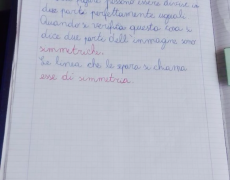 due parti perfettamente uguali
Quando si verifica questa cosa si
dice due parti dell'immagine sono
simmetriche.
La linea che le separa si chiama
asse di simmetria.